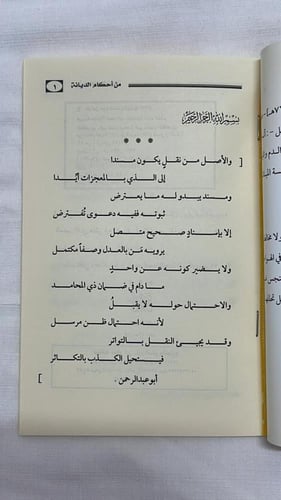 من أحكام الديانة
١
بسم الله الرحمن الرحيم
[ والأصل من نقلٍ يكون مسندا
إلى الذي بالمعجزات أيّدا
ومسند يبدو له ما يعترض
ثبوته ففيه دعوى تُفترض
إلا بإسنادٍ صحيح متصل
يرويه مَن بالعدل وصفاً مكتمل
ولا يضير كونه عن واحدٍ
ما دام في ضمان ذي المحامد
والاحتمال حوله لا يقبلُ
لأنه احتمال ظن مرسل
وقد يجيئ النقل بالتواتر
فيستحيل الكذب بالتكاثر
أبو عبدالرحمن . ]